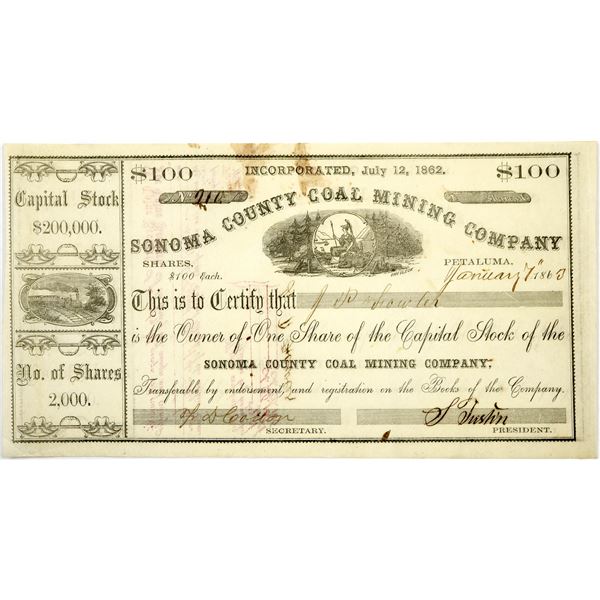 Capital Stock
$200,000.
No. of Shares
2,000.
$100 INCORPORATED, July 12, 1862. $100
No. 210
SONOMA COUNTY COAL MINING COMPANY
SHARES,
$100 Each.
PETALUMA, January 7th 1863
This is to Certify that J P Fowler
is the Owner of One Share of the Capital Stock of the
SONOMA COUNTY COAL MINING COMPANY.
Transferable by endorsement, and registration on the Books of the Company.
S Tustin
SECRETARY. PRESIDENT.